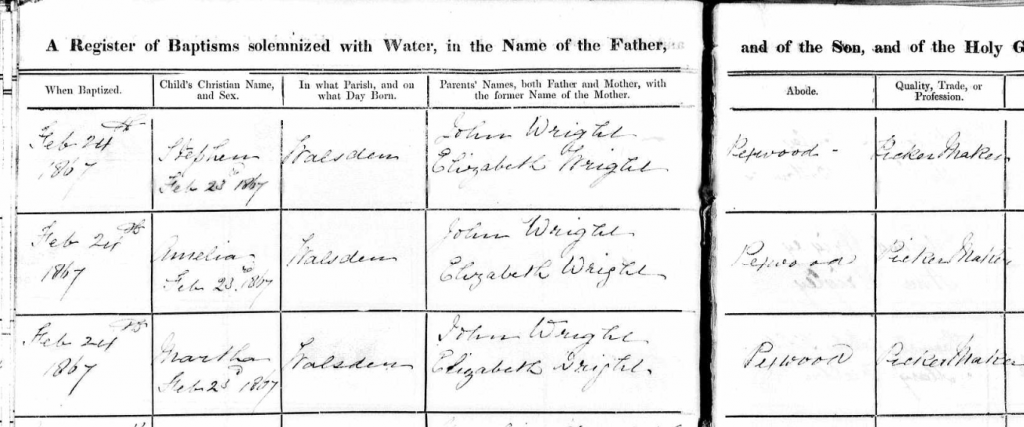 A Register of Baptisms solemnized with Water, in the Name of the Father, and of the Son, and of the Holy G
When Baptized. Child's Christian Name, and Sex. In what Parish, and on what Day Born. Parents' Names, both Father and Mother, with the former Name of the Mother. Abode. Quality, Trade, or Profession.
Feb 24th
1867
Stephen
Feb 23d 1867
Walsden
John Wright
Elizabeth Wright
Pexwood
Picker Maker
Feb 24th
1867
Amelia
Feb 23d 1867
Walsden
John Wright
Elizabeth Wright
Pexwood
Picker Maker
Feb 24th
1867
Martha
Feb 23d 1867
Walsden
John Wright
Elizabeth Wright.
Pexwood
Picker Maker